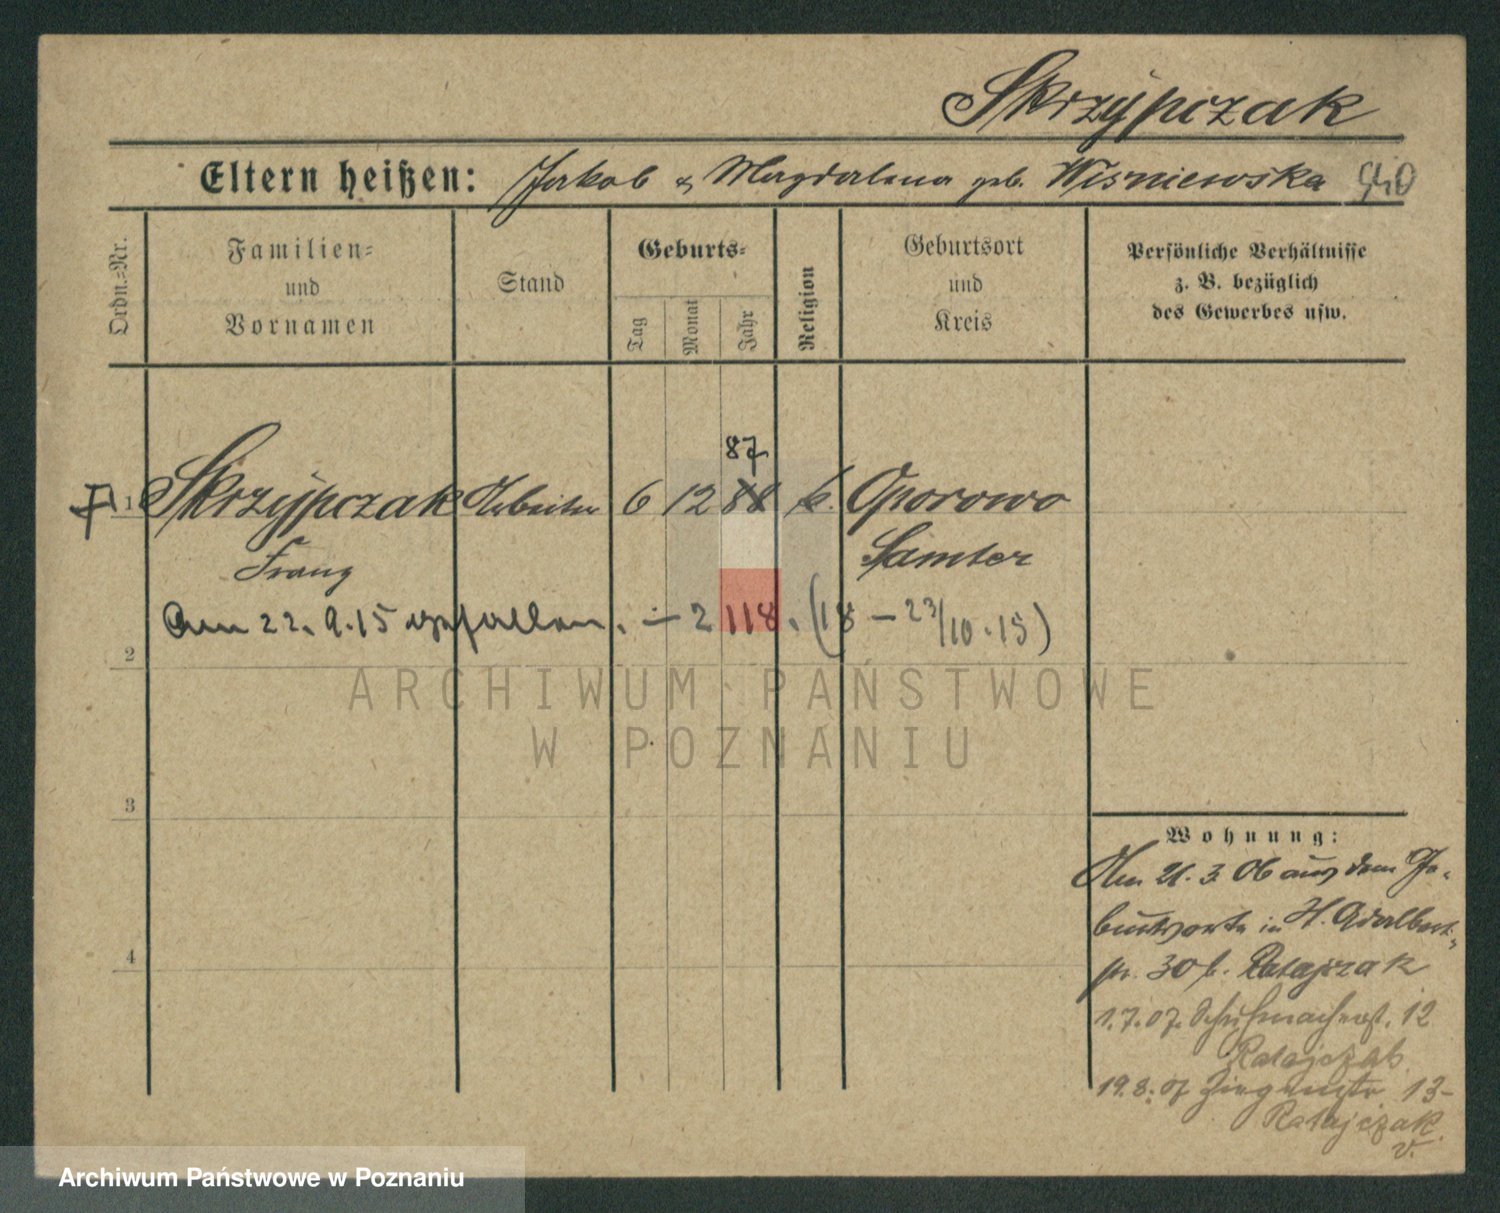 Skrzypczak
Eltern heißen: Jakob & Magdalena geb. Wisniewska
Ordn.-Nr.
Familien-
und
Vornamen
Stand
Geburts-
Tag
Monat
Jahr
Religion
Geburtsort
und
Kreis
Persönliche Verhältnisse
z. B. bezüglich
des Gewerbes usw.
87
1 Skrzypczak Arbeiter 6 12 88 k. Oporowo
Franz Samter
Am 22. 9. 15 gefallen. – 2118. (18 – 23/10. 15)
2
ARCHIWUM PAŃSTWOWE
W POZNANIU
3
Wohnung:
Am 21. 3. 06 aus dem Ge-
burtsorte in H. Adalbert-
str. 30 b. Ratajczak
4
1.7.07. Schuhmacherst. 12
Ratajczak
19.8.07 13
Ratajczak
v.
Archiwum Państwowe w Poznaniu